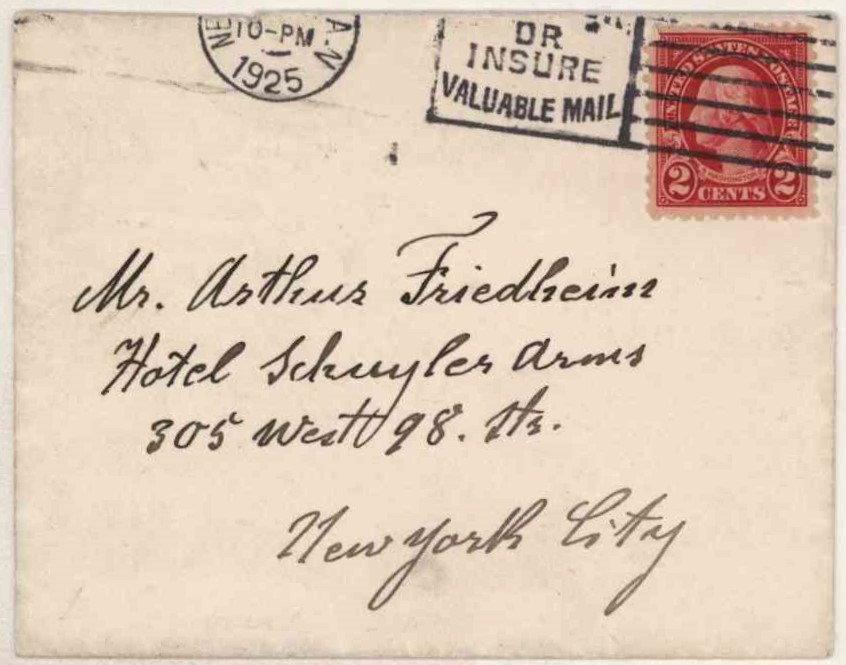 10-PM
1925
OR
INSURE
VALUABLE MAIL
UNITED STATES POSTAGE
WASHINGTON
2 CENTS 2
Mr. Arthur Friedheim
Hotel Schuyler Arms
305 West 98. Str.
New York City